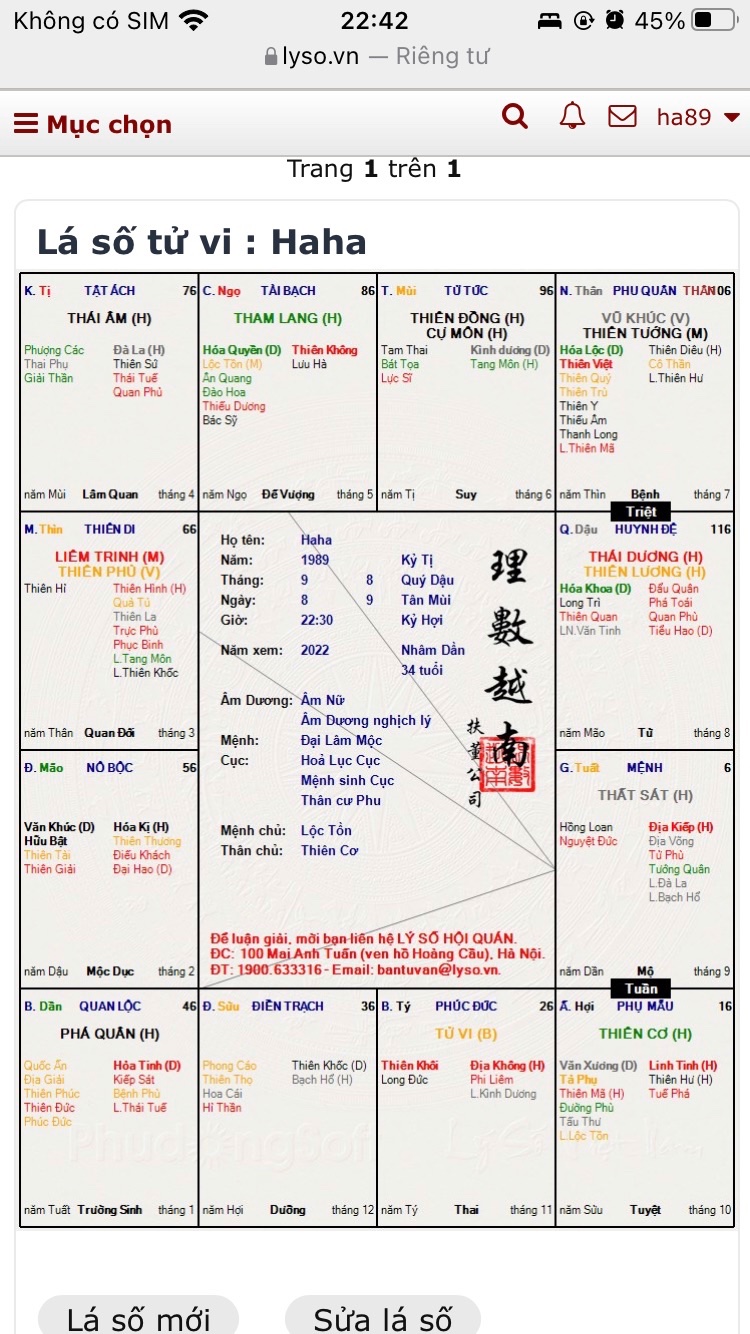 Không có SIM 22:42 45%
lyso.vn — Riêng tư
Mục chọn ha89
Trang 1 trên 1
Lá số tử vi : Haha
K. Tị TẬT ÁCH 76
THÁI ÂM (H)
Phượng Các Đà La (H)
Thai Phụ Thiên Sứ
Giải Thần Thái Tuế
Quan Phủ
năm Mùi Lâm Quan tháng 4
C. Ngọ TÀI BẠCH 86
THAM LANG (H)
Hóa Quyền (D) Thiên Không
Lộc Tồn (M) Lưu Hà
Ân Quang
Đào Hoa
Thiếu Dương
Bác Sỹ
năm Ngọ Đế Vượng tháng 5
T. Mùi TỬ TỨC 96
THIÊN ĐỒNG (H)
CỰ MÔN (H)
Tam Thai Kình dương (D)
Bát Tọa Tang Môn (H)
Lực Sĩ
năm Tị Suy tháng 6
N. Thân PHU QUÂN THÂN 06
VŨ KHÚC (V)
THIÊN TƯỚNG (M)
Hóa Lộc (D) Thiên Diêu (H)
Thiên Việt Cô Thần
Thiên Quý L.Thiên Hư
Thiên Trù
Thiên Y
Thiếu Âm
Thanh Long
L.Thiên Mã
năm Thìn Bệnh tháng 7
Triệt
M. Thìn THIÊN DI 66
LIÊM TRINH (M)
THIÊN PHỦ (V)
Thiên Hỉ Thiên Hình (H)
Quả Tú
Thiên La
Trực Phù
Phục Binh
L.Tang Môn
L.Thiên Khốc
năm Thân Quan Đới tháng 3
Họ tên: Haha
Năm: 1989 Kỷ Tị
Tháng: 9 8 Quý Dậu
Ngày: 8 9 Tân Mùi
Giờ: 22:30 Kỷ Hợi
Năm xem: 2022 Nhâm Dần
34 tuổi
Âm Dương: Âm Nữ
Âm Dương nghịch lý
Mệnh: Đại Lâm Mộc
Cục: Hoả Lục Cục
Mệnh sinh Cục
Thân cư Phu
Mệnh chủ: Lộc Tồn
Thân chủ: Thiên Cơ
理
數
越
南
扶
董
公
司
Để luận giải, mời bạn liên hệ LÝ SỐ HỘI QUÁN.
ĐC: 100 Mai Anh Tuấn (ven hồ Hoàng Cầu), Hà Nội.
ĐT: 1900.633316 - Email: bantuvan@lyso.vn.
Q. Dậu HUYNH ĐỆ 116
THÁI DƯƠNG (H)
THIÊN LƯƠNG (H)
Hóa Khoa (D) Đẩu Quân
Long Trì Phá Toái
Thiên Quan Quan Phù
LN.Văn Tinh Tiểu Hao (D)
năm Mão Tử tháng 8
Đ. Mão NÔ BỘC 56
Văn Khúc (D) Hóa Kị (H)
Hữu Bật Thiên Thương
Thiên Tài Điếu Khách
Thiên Giải Đại Hao (D)
năm Dậu Mộc Dục tháng 2
G. Tuất MỆNH 6
THẤT SÁT (H)
Hồng Loan Địa Kiếp (H)
Nguyệt Đức Địa Võng
Tử Phù
Tướng Quân
L.Đà La
L.Bạch Hổ
năm Dần Mộ tháng 9
Tuần
B. Dần QUAN LỘC 46
PHÁ QUÂN (H)
Quốc Ấn Hỏa Tinh (D)
Địa Giải Kiếp Sát
Thiên Phúc Bệnh Phù
Thiên Đức L.Thái Tuế
Phúc Đức
năm Tuất Trường Sinh tháng 1
Đ. Sửu ĐIỀN TRẠCH 36
Phong Cáo Thiên Khốc (D)
Thiên Thọ Bạch Hổ (H)
Hoa Cái
Hỉ Thần
năm Hợi Dưỡng tháng 12
B. Tý PHÚC ĐỨC 26
TỬ VI (B)
Thiên Khôi Địa Không (H)
Long Đức Phi Liêm
L.Kình Dương
năm Tý Thai tháng 11
Ấ. Hợi PHỤ MẪU 16
THIÊN CƠ (H)
Văn Xương (D) Linh Tinh (H)
Tả Phụ Thiên Hư (H)
Thiên Mã (H) Tuế Phá
Đường Phù
Tấu Thư
L.Lộc Tồn
năm Sửu Tuyệt tháng 10
Lá số mới Sửa lá số